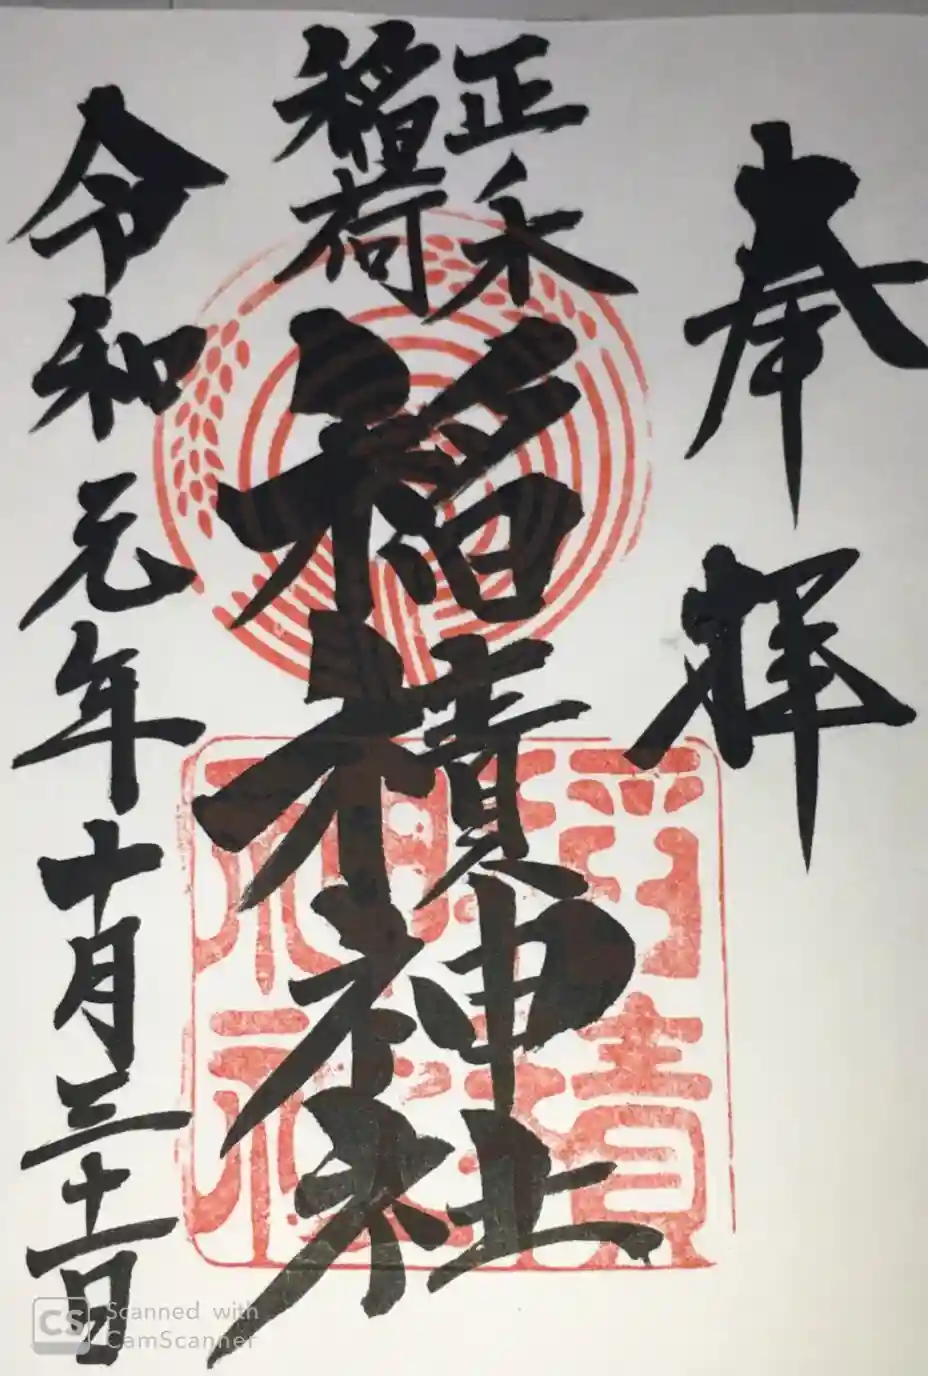 奉拝
正木
稲荷
稲積神社
令和元年十月三十一日
稲積
神社
CS Scanned with
CamScanner